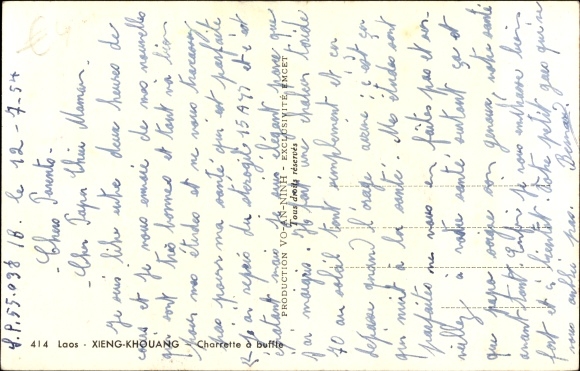 S.P. 55.038 T.B. le 12-7-54
- Chers Parents -
- Cher Papa Chère Maman -
Je suis libre entre deux heures de
cours et je vous envoie de mes nouvelles
qui sont très bonnes et tant va bien
pour mes études et ne vous tracassez
pas pour ma santé qui est parfaite
j'ai repris du
épatant mais je suis élégant parce que
j'ai maigri. Il fait une chaleur lourde
70 au soleil tout simplement et ça
dépasse quand l'orage
qui nuit à la santé. Mes études sont
parfaites ne vous en faites pas et sur-
veillez votre santé surtout ça et
que papa soigne son genoux, votre santé
avant tout. Enfin je vous embrasse bien
fort et à bientôt. Votre petit gars qui ne
vous oublie pas.
PRODUCTION VO-AN-NINH - EXCLUSIVITÉ EMCET
Tous droits réservés
414 Laos - XIENG-KHOUANG - Charrette à buffle